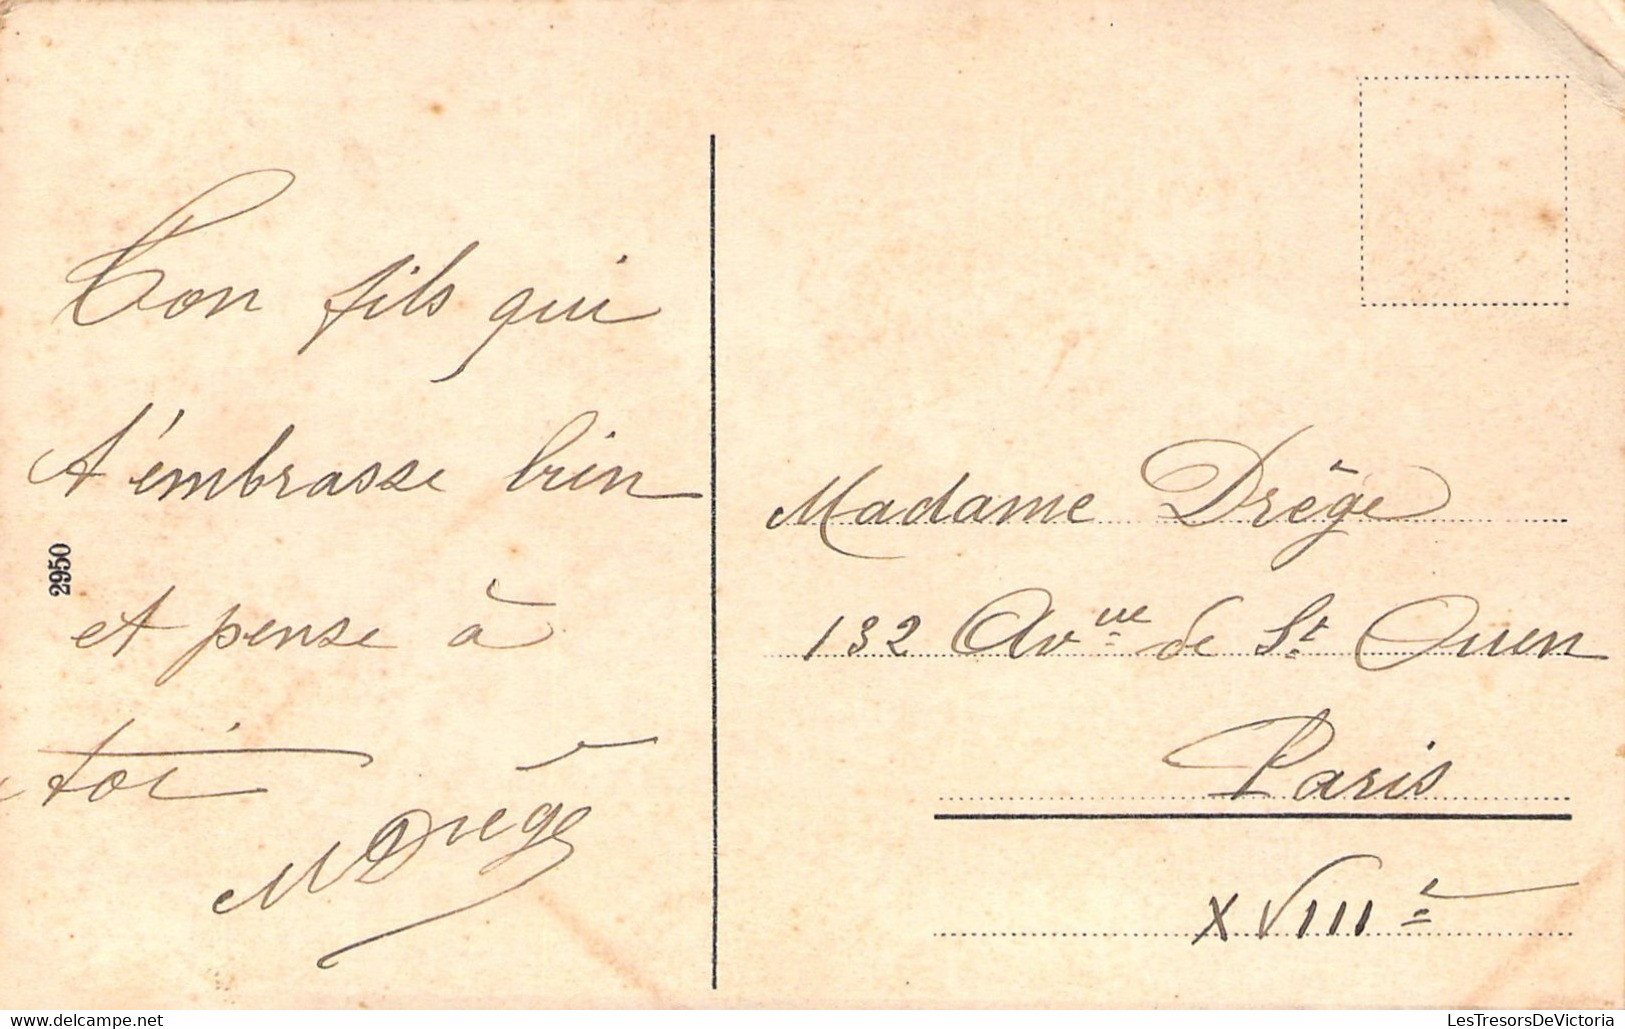 Ton fils qui
t'embrasse bien
et pense à
toi
M Drège
2950
Madame Drège
132 Avᵘᵉ de Sᵗ Ouen
Paris
XVIIIᵉ
LesTresorsDeVictoria